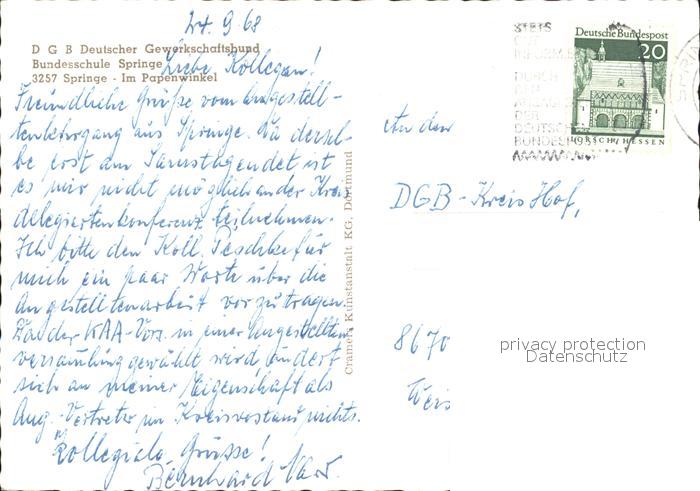 24.9.68
D G B Deutscher Gewerkschaftsbund
Bundesschule Springe
3257 Springe - Im Papenwinkel
Liebe Kollegen!
Freundliche Grüsse vom Angestell-
tenlehrgang aus Springe. Da dersel-
be erst am Samstag endet ist
es mir nicht möglich an der Kreis
delegiertenkonferenz teilnehmen.
Ich bitte den Koll. Peschke für
mich ein paar Worte über die
Angestelltenarbeit vorzutragen.
Da der KAA-Vors. in einer Angestellten
versammlung gewählt wird, ändert
sich an meiner Eigenschaft als
Ang.-Vertreter im Kreisvorstand nichts.
Kollegiale Grüsse!
Bernhard
Cramers Kunstanstalt KG, Dortmund
STETS
INFORM
DURCH
DER
DEUTSC
BUNDESPOST
Deutsche Bundespost
20
LORSCH/HESSEN
An den
DGB-Kreis Hof,
8670
privacy protection
Datenschutz